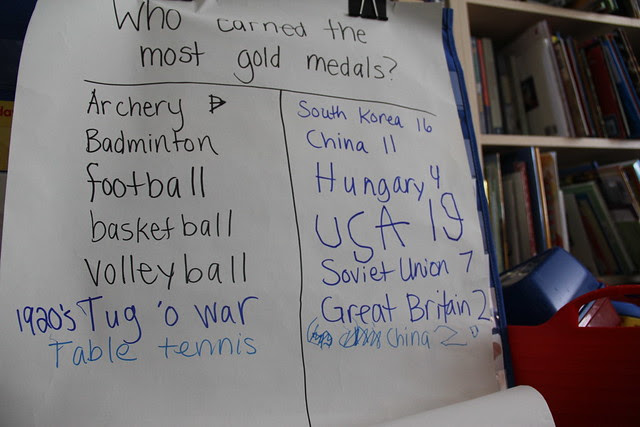 Who earned the
most gold medals?
Archery South Korea 16
Badminton China 11
football Hungary 4
basketball USA 19
Volleyball Soviet Union 7
1920's Tug 'o war Great Britain 2
Table tennis China 20